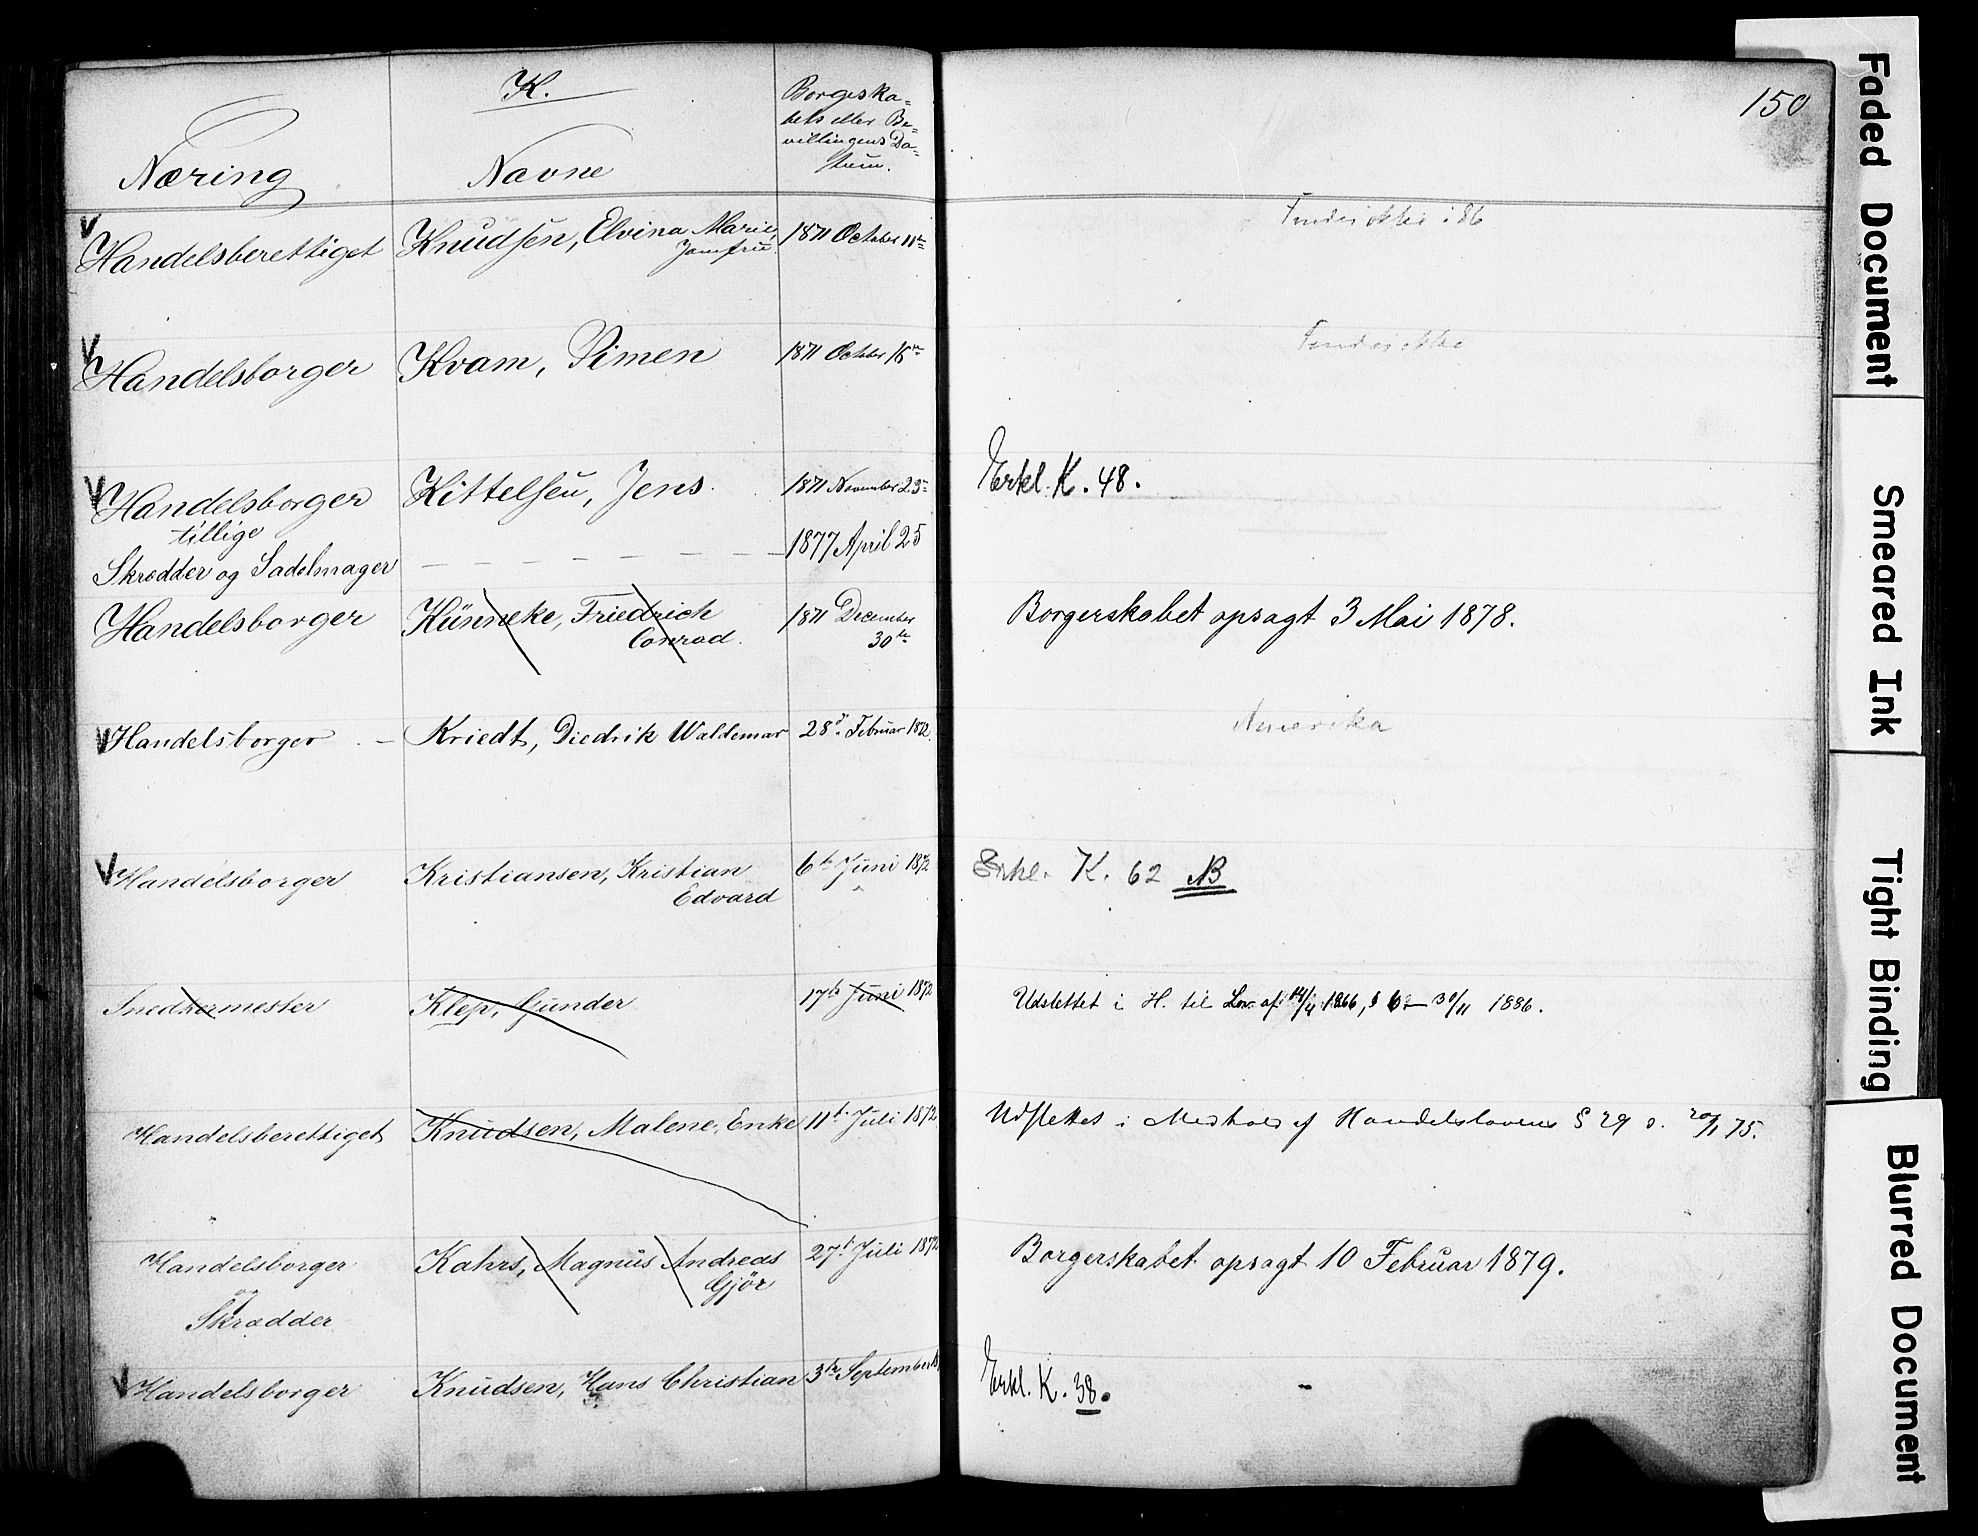 K.
Næring
Navne
Borgeska-
bets eller Be-
villingens Da-
tum.
150
Handelsberettiget Knudsen, Elvina Marie, 1871 October 11te
Jomfru
Findes ikke i 86
Handelsborger Kvam, Simen 1871 October 16te
Findes ikke
Handelsborger Kittelsen, Jens. 1871 November 23de Erkl. K. 48.
tillige
Skrædder og Sadelmager — — — — — — 1877 April 25
Handelsborger Künneke, Friedrich 1871 December Borgerskabet opsagt 3 Mai 1878.
Conrad. 30te
Handelsborger — Kriedt, Diedrik Waldemar 28d. Februar 1872.
Amerika
Handelsborger Kristiansen, Kristian 6te Juni 1872 Erkl. K. 62 NB
Edvard
Snedkermester Klep, Gunder 17de Juni 1872 Udslettet i H. til Lov af 14/4 1866, § 6 — 30/11 1886.
Handelsberettiget Knudsen, Malene, Enke 11t. Juli 1872 Udslettes i Medhold af Handelslovens § 29 d. 20/1 75.
Handelsborger Kahrs, Magnus Andreas 27d. Juli 1872 Borgerskabet opsagt 10 Februar 1879.
Gjör
og
Skrædder
Handelsborger Knudsen, Hans Christian 3die September Erkl. K. 38.
Faded Document
Smeared Ink
Tight Binding
Blurred Document